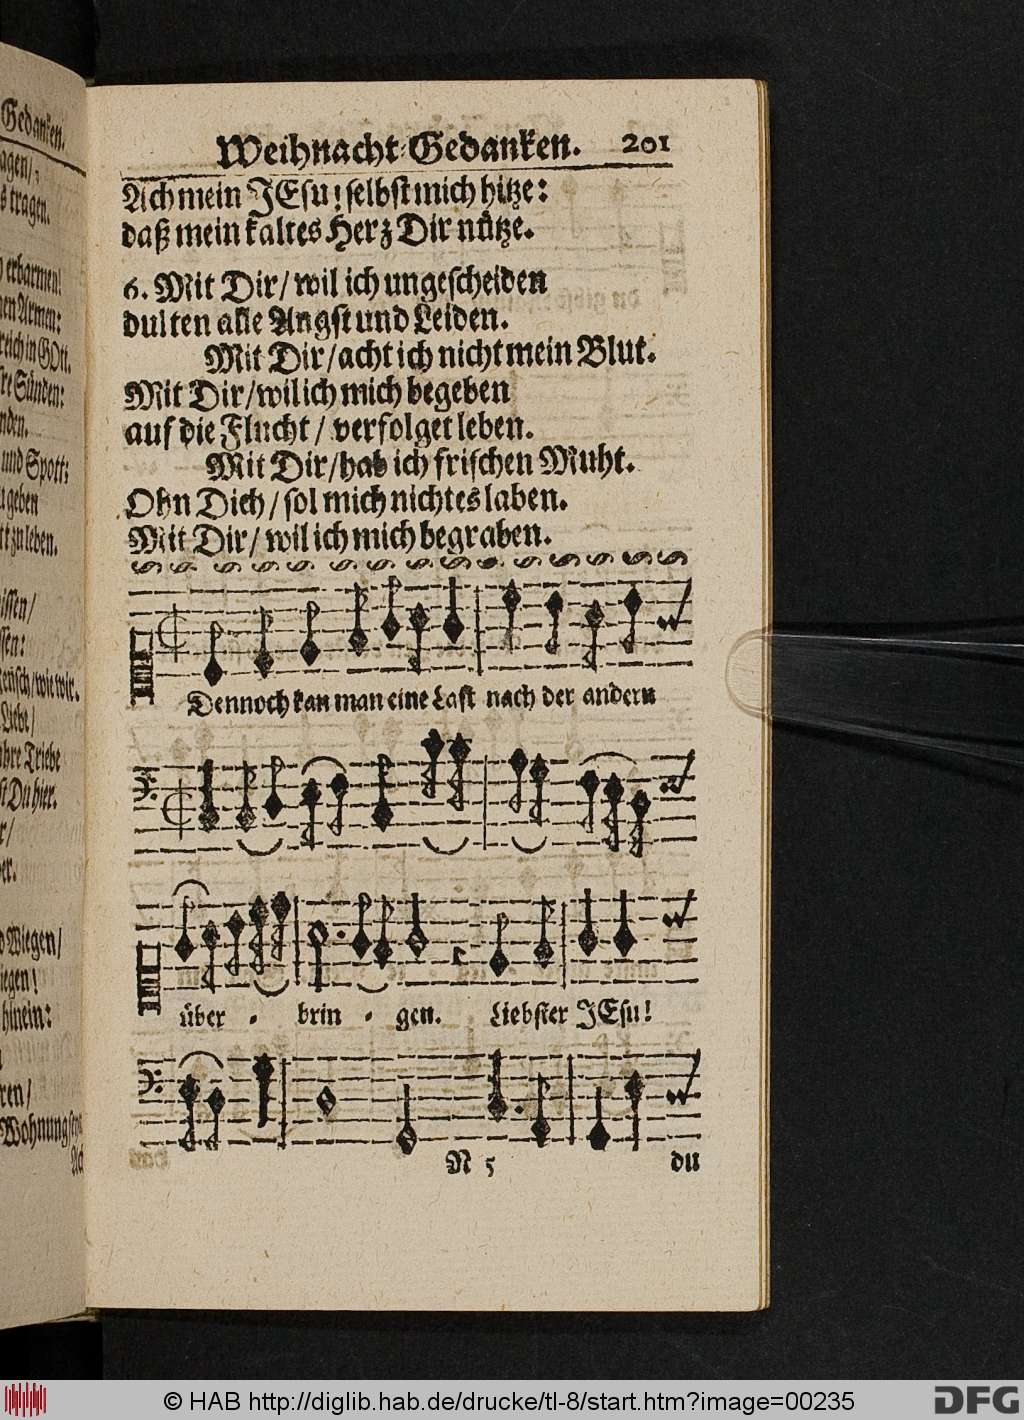 Gedanken.
agen/
s tragen.
erbarmen!
Armen:
reich in GOtt.
Sünden:
nden.
und Spott;
geben
zu leben.
issen/
ssen:
wie wir.
Liebe/
ahre Triebe
Du hier.
r/
er.
Wiegen/
iegen!
hinein:
ren/
Wohnung seyn
Ach
Weihnacht-Gedanken. 201
Ach mein JEsu! selbst mich hitze:
daß mein kaltes Herz Dir nütze.
6. Mit Dir/ wil ich ungescheiden
dulten alle Angst und Leiden.
Mit Dir/ acht ich nicht mein Blut.
Mit Dir/ wil ich mich begeben
auf die Flucht/ verfolget leben.
Mit Dir/ hab ich frischen Muht.
Ohn Dich/ sol mich nichtes laben.
Mit Dir/ wil ich mich begraben.
Dennoch kan man eine Last nach der andern
über - brin - gen. Liebster JEsu!
N 5 du
© HAB http://diglib.hab.de/drucke/tl-8/start.htm?image=00235
DFG